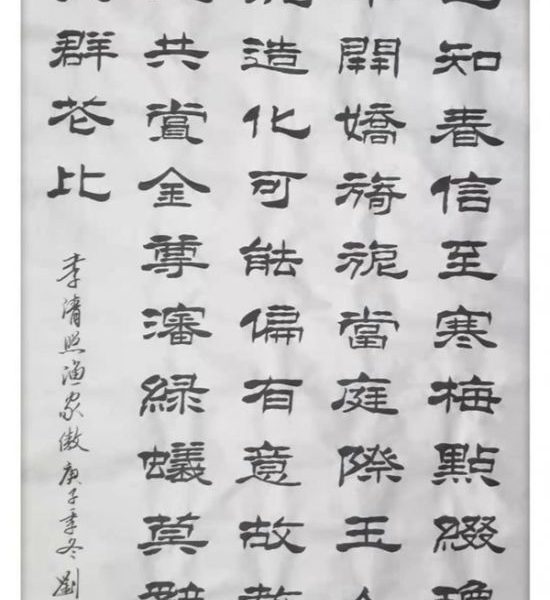 知春信至寒梅點綴瓊
開嬌旖旎當庭際玉人
造化可能偏有意故教
共賞金尊瀋綠蟻莫辭
群花比
李清照渔家傲庚子季冬劉